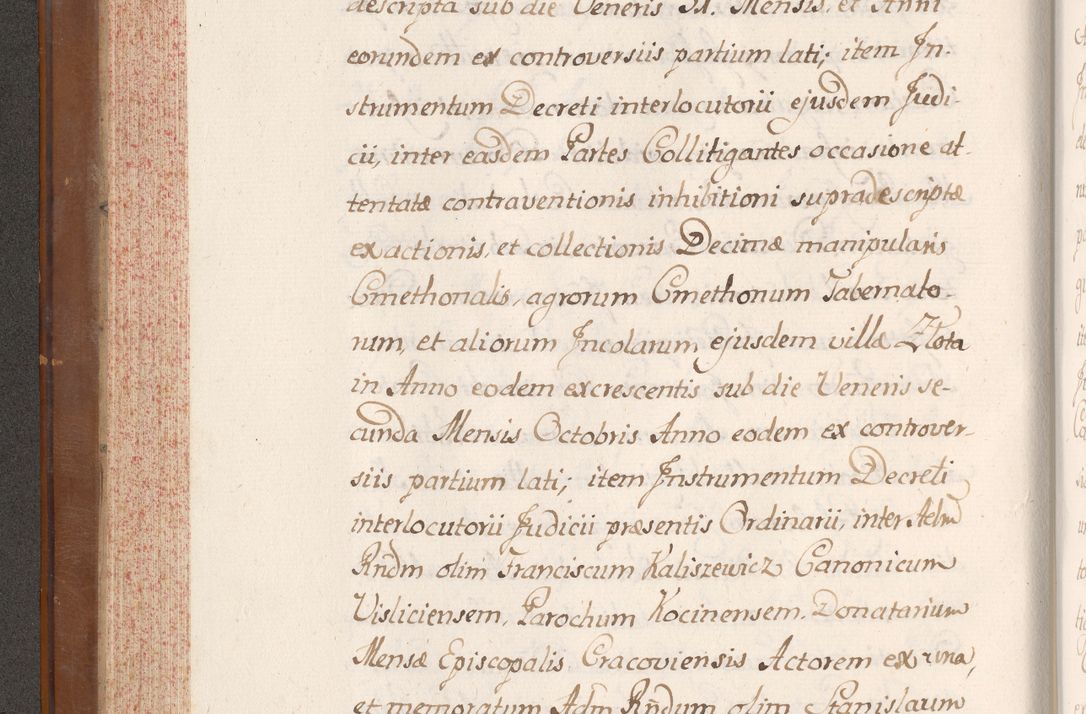 descripta sub die Veneris 21. Mensis, et Anni
eorundem ex controversiis partium lati; item In-
strumentum Decreti interlocutorii ejusdem Judi-
cii, inter easdem Partes Collitigantes occasione at-
tentatæ contraventionis inhibitioni supradescriptæ
exactionis, et collectionis Decimæ manipularis
Cmethonalis, agrorum Cmethonum Tabernato-
rum, et aliorum Incolarum ejusdem villæ Złota
in Anno eodem excrescentis sub die Veneris se-
cunda Mensis Octobris Anno eodem ex controver-
siis partium lati; item Instrumentum Decreti
interlocutorii Judicii præsentis Ordinarii, inter
Rndm olim Franciscum Kaliszewicz Canonicum
Visliciensem, Parochum Kocinensem, Donatarium
Mensæ Episcopalis Cracoviensis Actorem ex una,
et memoratum Adm Rndum olim Stanislaum